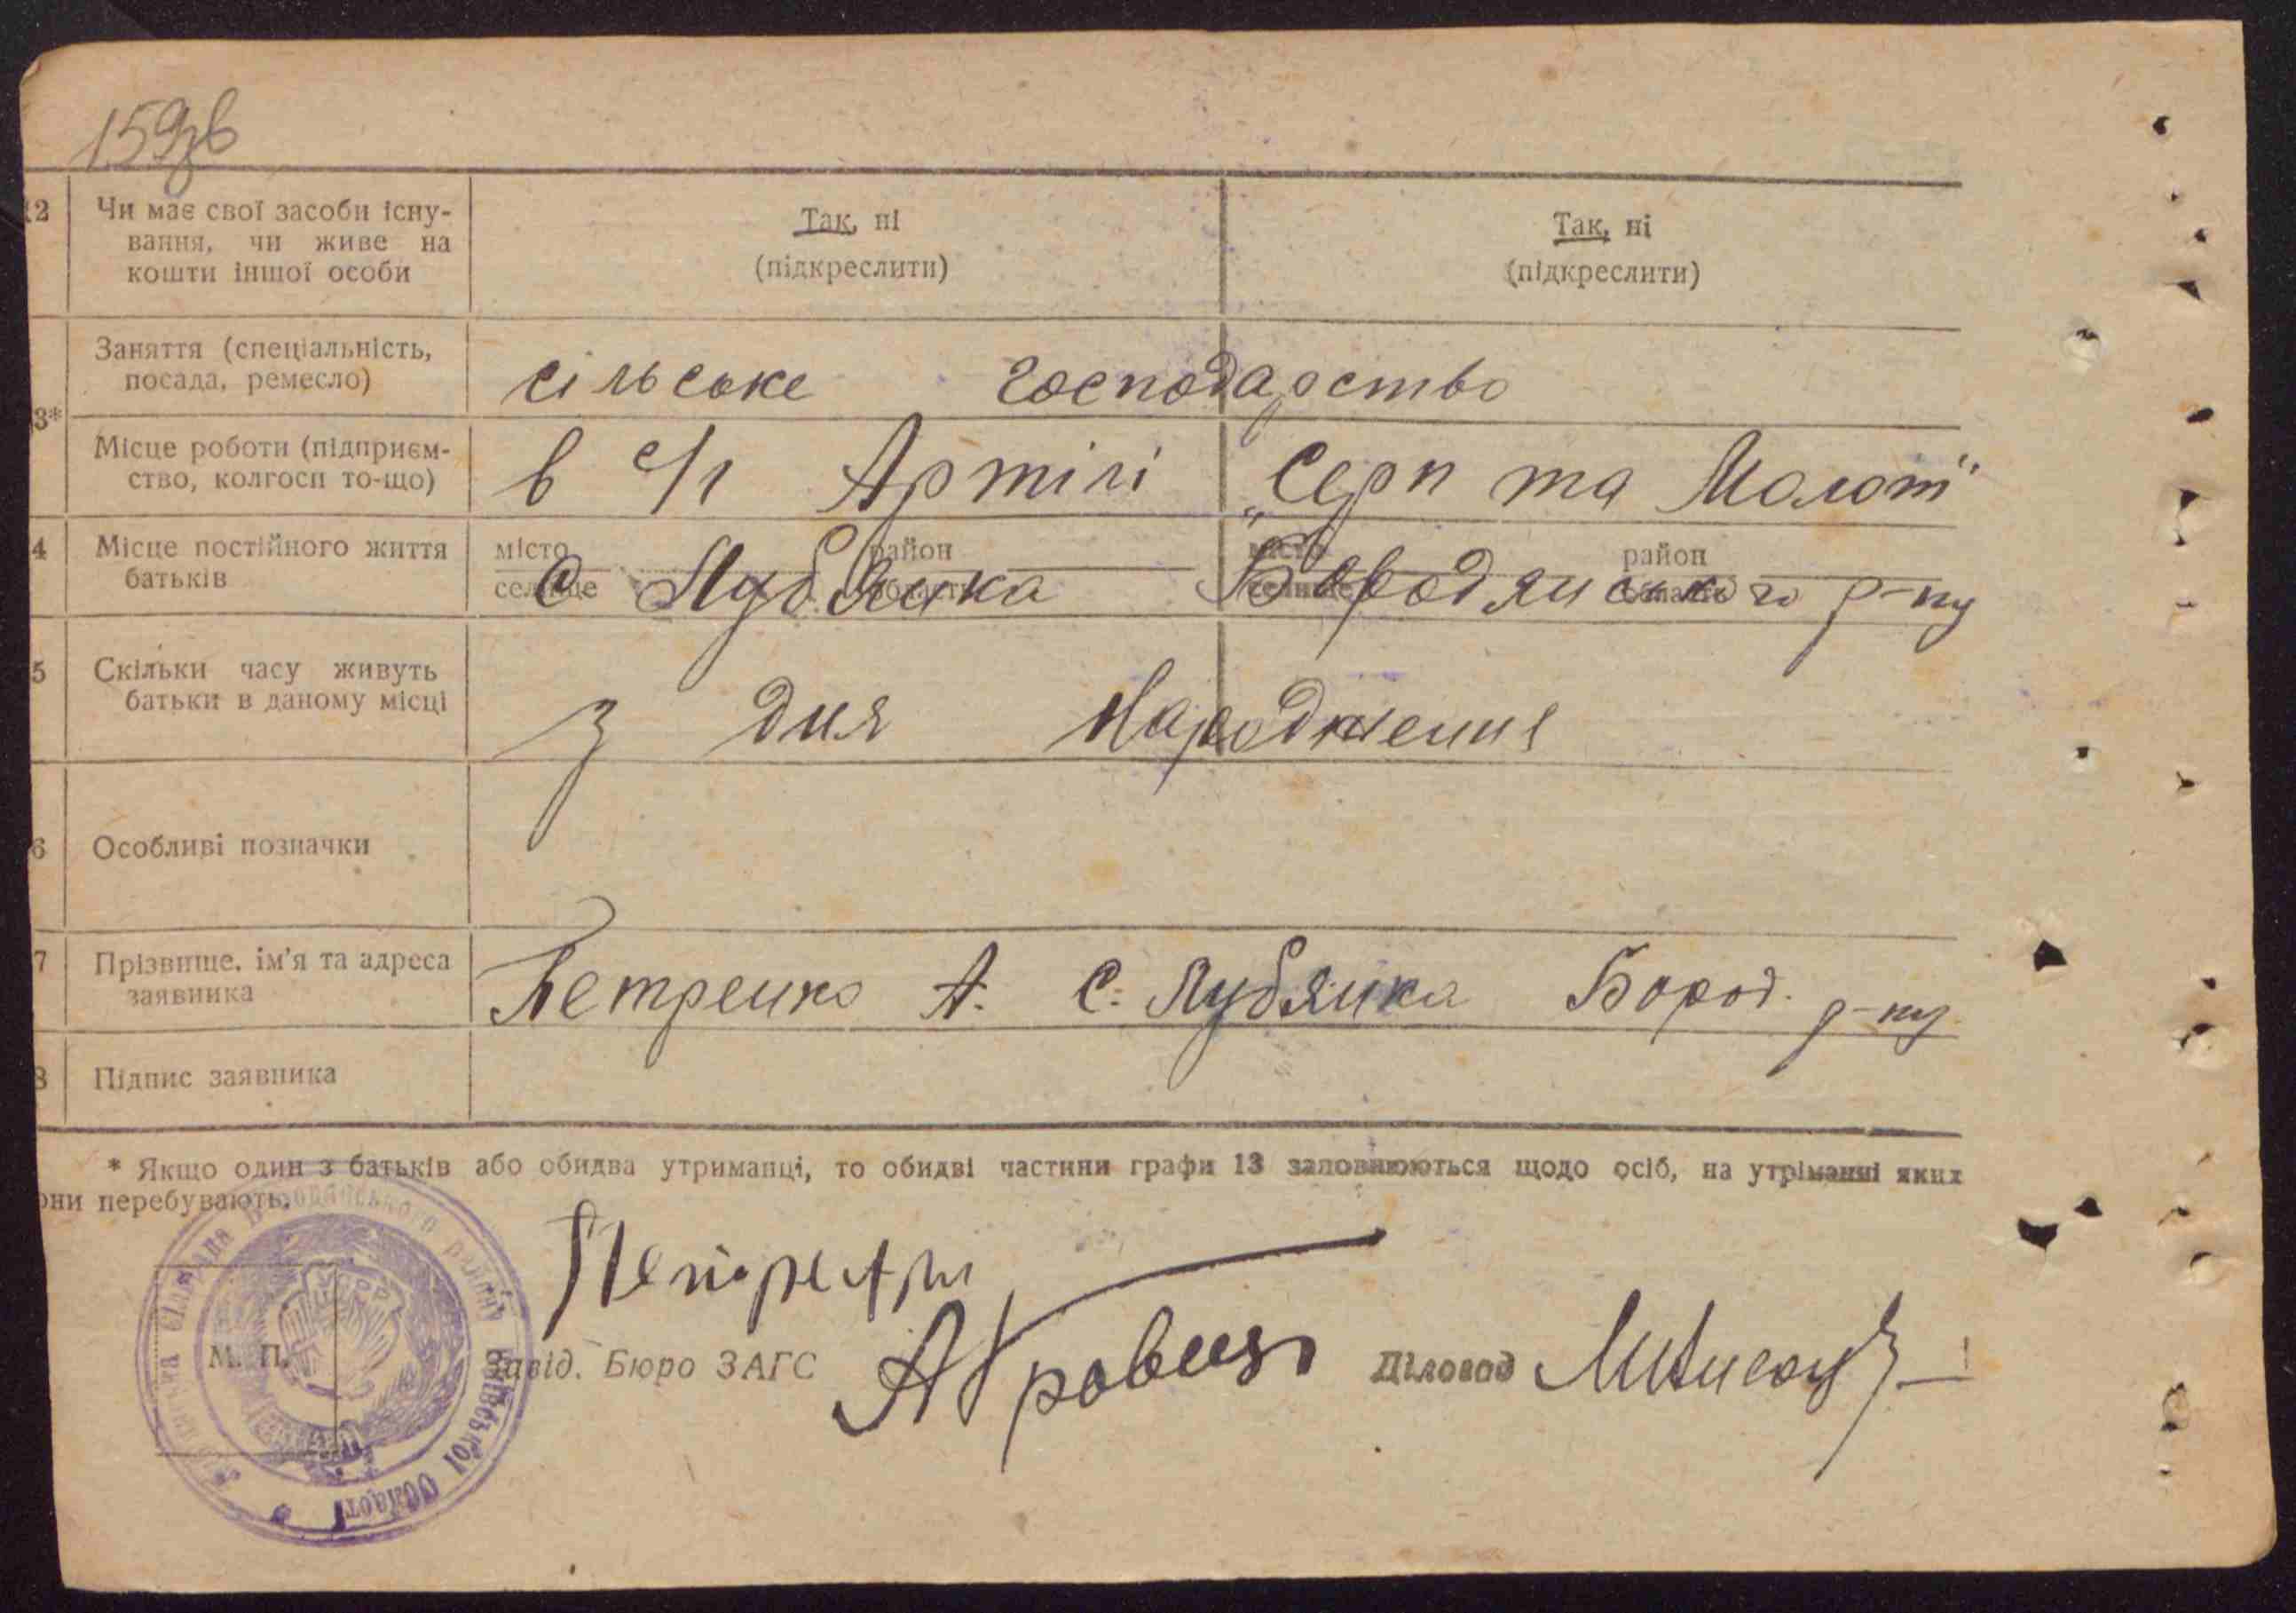 159зв
12 Чи має свої засоби існу-
вання, чи живе на
кошти іншої особи
Так, ні
(підкреслити)
Так, ні
(підкреслити)
3*
Заняття (спеціальність,
посада, ремесло)
сільське господарство
Місце роботи (підприєм-
ство, колгосп то-що)
в с/г Артілі „Серп та Молот"
4 Місце постійного життя
батьків
місто
селище
район
область
місто
селище
район
область
С Лубянка Бородянського р-ну
5 Скільки часу живуть
батьки в даному місці
з дня народження
6 Особливі позначки
7 Прізвище, ім'я та адреса
заявника
Петренко А. С. Лубянка Бород. р-ну
8 Підпис заявника
* Якщо один з батьків або обидва утриманці, то обидві частини графи 13 заповнюються щодо осіб, на утріманні яких
они перебувають.
М. П.
Завід. Бюро ЗАГС
Діловод
рада Бородянського району Київської Області
УСРР